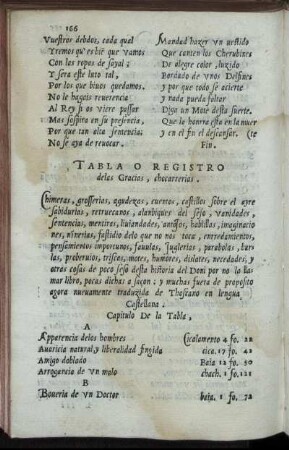 166
Vuestros debdos, cada qual
Yremos qu'es biẽ que vamos
Con las ropas de sayal;
Y sera este luto tal,
Por los que biuos quedamos.
No le hagais reuerencia
Al Rey si os viere passar
Mas sospito en su presencia,
Por que tan alta sentencia;
No se aya de reuocar.
Mandad hazer vn uestido
Que canten los Cherubines
De alegre color, luzido
Bordado de vnos Delfines
y por que todo se acierte
y nada pueda faltar
Diga vn Mote desta suerte.
Que la honrra esta en la muer
y en el fin el descansar. (te
Fin.
TABLA O REGISTRO
delas Gracias, chocarrerias.
Chimeras, grosserias, agudezas, cuentos, castillos sobre el ayre
sabidurias, retruecanos, alambiques del seso, vanidades,
sentencias, mentiras, liuiandades, antojos, bobillos, imaginacio
nes, niñerias, fastidio delo que nos toca, entredamientos,
pensamientos importunos, fauolas, Iuglerias, parabolas, bur
las, prouerbios, tristeos, motes, humores, dislates, necedades; y
otras cosas de poco seso desta historia del Doni por no la lla
mar libro, pocas dichas a saçon; y muchas fuera de proposito
agora nueuamente traduzida de Thoscano en lengua
Castellana.
Capitulo De la Tabla,
A
Apparencia delos hombres Cicalamento 4 fo. 22
Auaricia natural, y liberalidad fingida tica. 17 fo. 42
Amigo doblado Baia 12 fo. 90
Arrogancia de vn malo chach. 1 fo. 129
B
Boueria de vn Doctor baja. 1 fo. 72